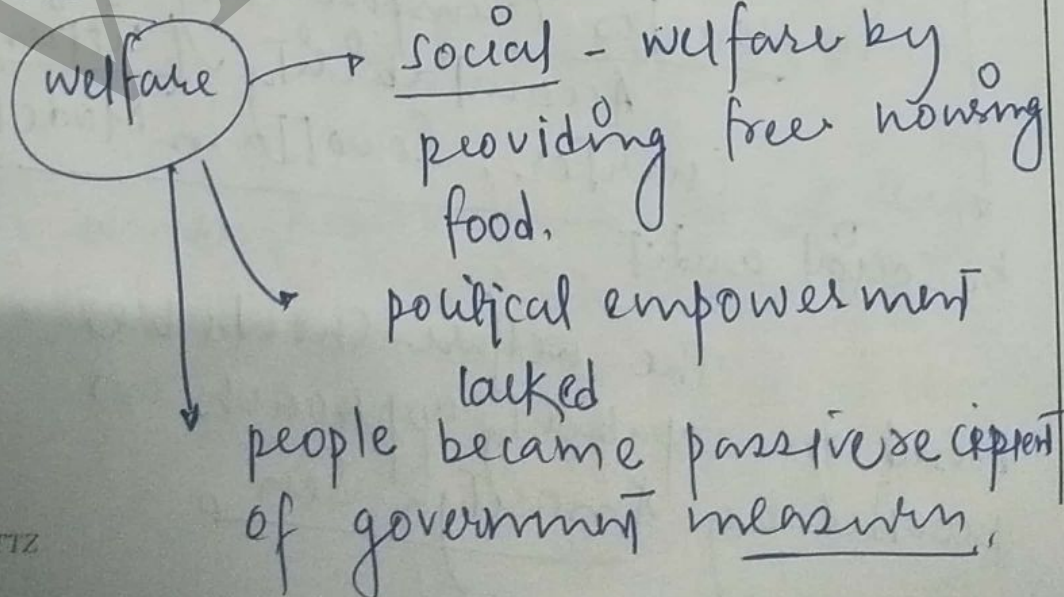 welfare
social - welfare by
providing free housing
food.
political empowerment
lacked
people became passive recipient
of government measures.